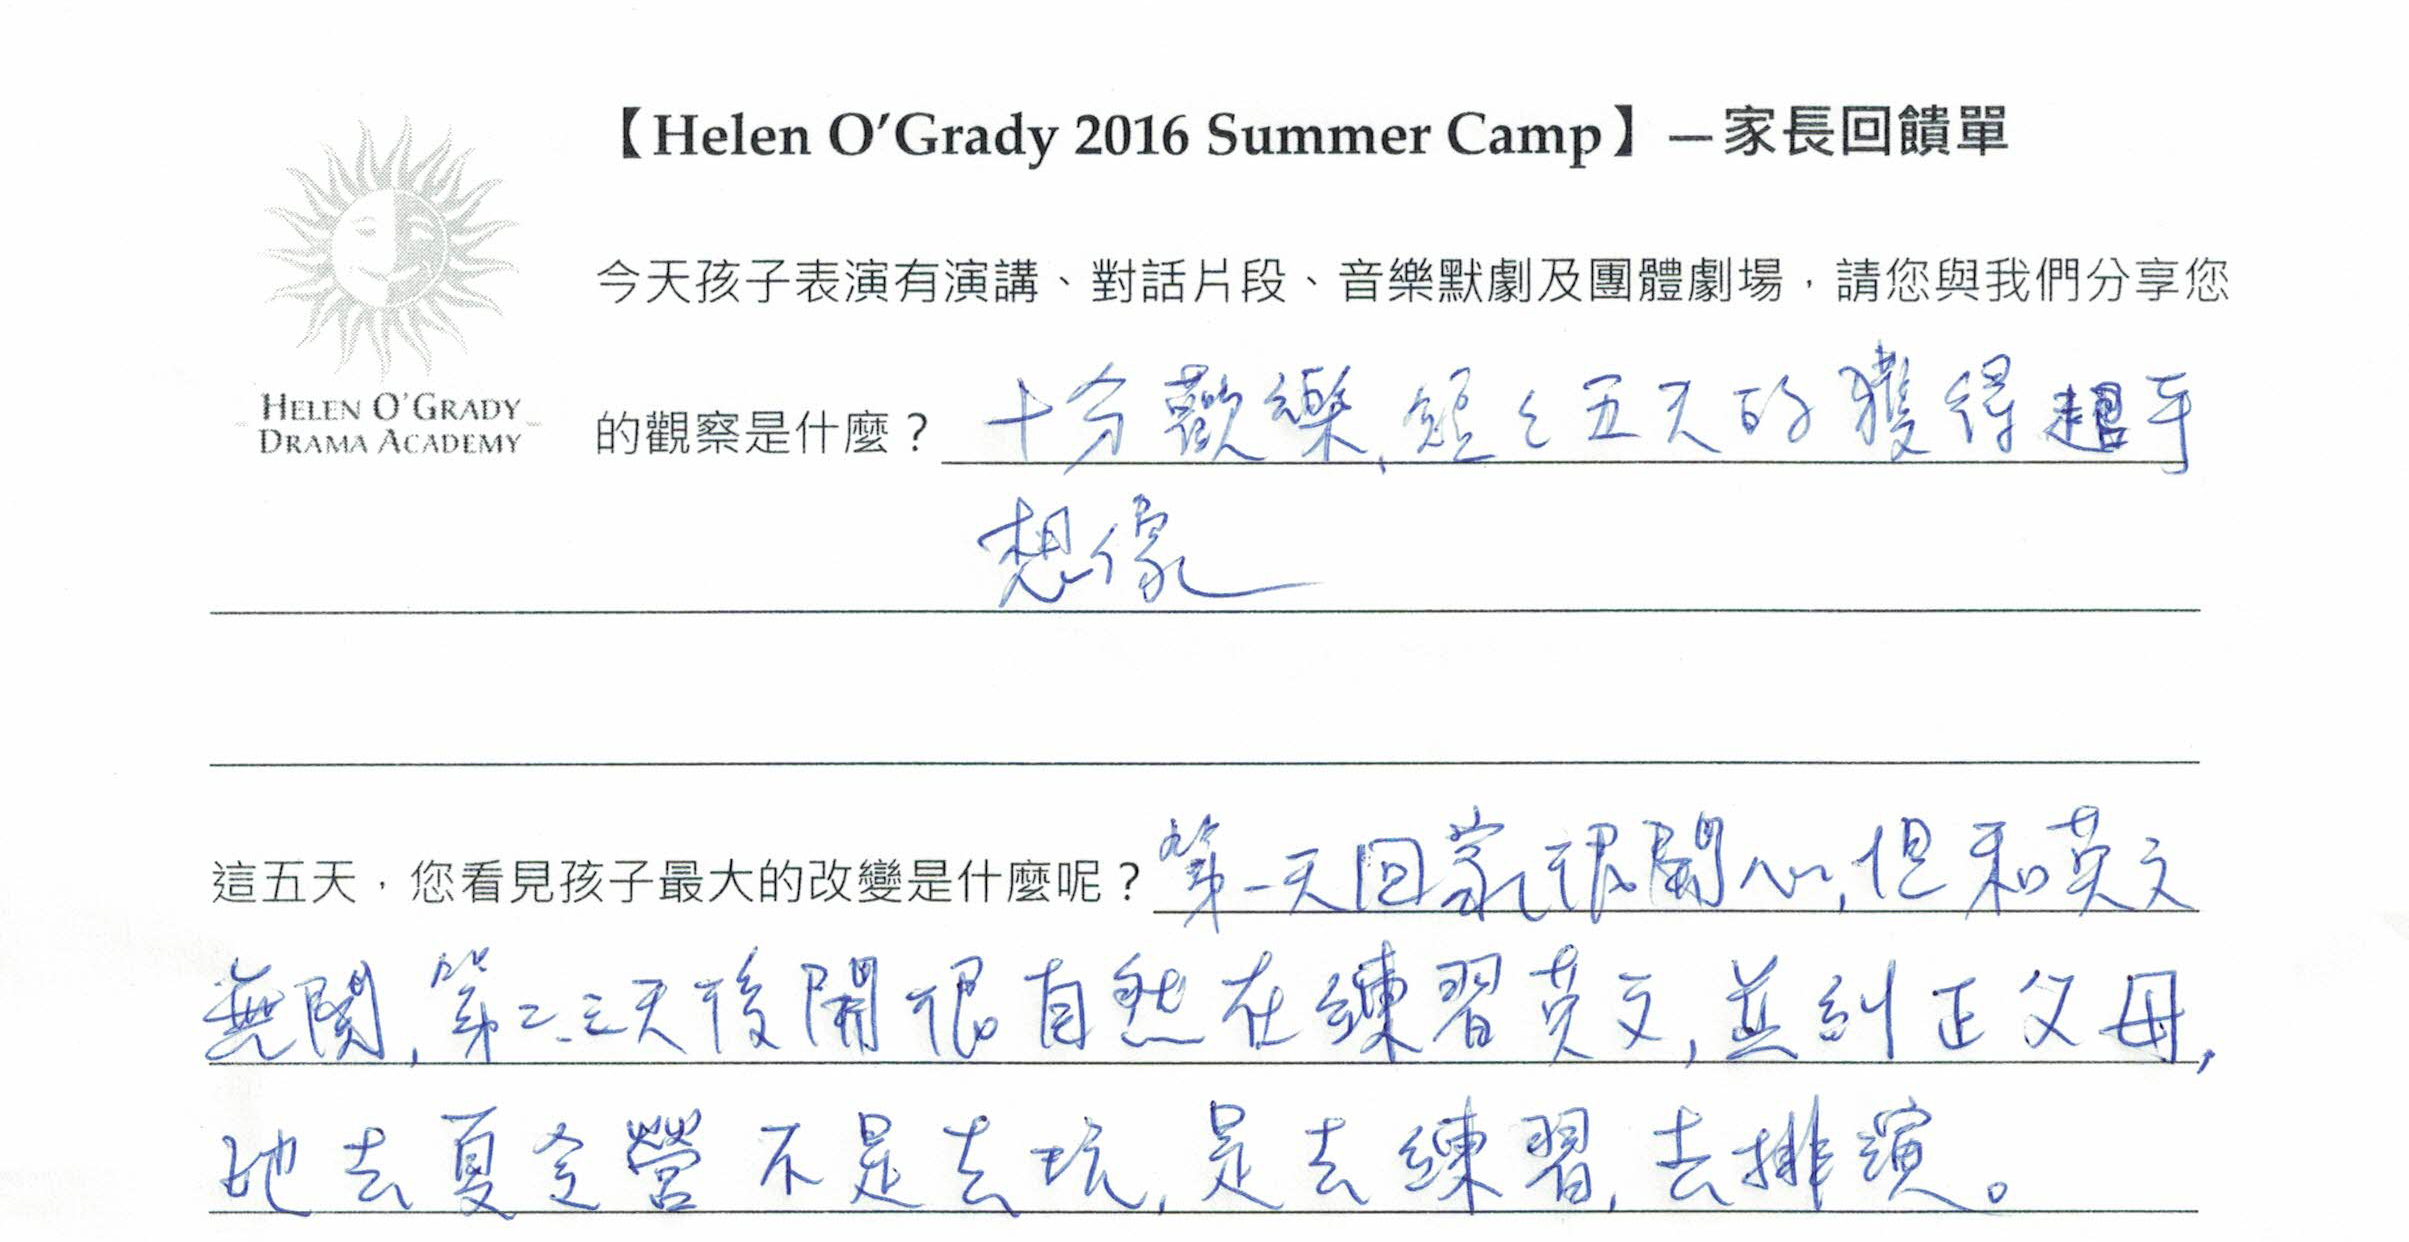 【Helen O'Grady 2016 Summer Camp】—家長回饋單
HELEN O'GRADY
DRAMA ACADEMY
今天孩子表演有演講、對話片段、音樂默劇及團體劇場，請您與我們分享您
的觀察是什麼？十分歡樂,短々五天的獲得超乎
想像
這五天，您看見孩子最大的改變是什麼呢？第一天回家很開心,但和英文
無關,第二、三天後開很自然在練習英文,並糾正父母,
她去夏令營不是去玩,是去練習,去排演。